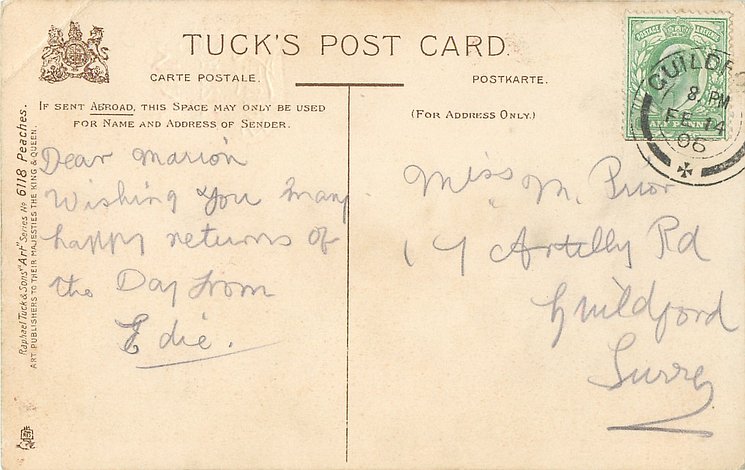 TUCK'S POST CARD.
CARTE POSTALE. POSTKARTE.
IF SENT ABROAD, THIS SPACE MAY ONLY BE USED
FOR NAME AND ADDRESS OF SENDER.
(FOR ADDRESS ONLY.)
Raphael Tuck & Sons' "Art" Series No 6118 Peaches.
ART PUBLISHERS TO THEIR MAJESTIES THE KING & QUEEN.
Dear Marion
Wishing you many
happy returns of
the Day from
Edie.
Miss M. Prior
17 Artilly Rd
Guildford
Surrey
POSTAGE
GUILDFO
8. PM
FE 14
06